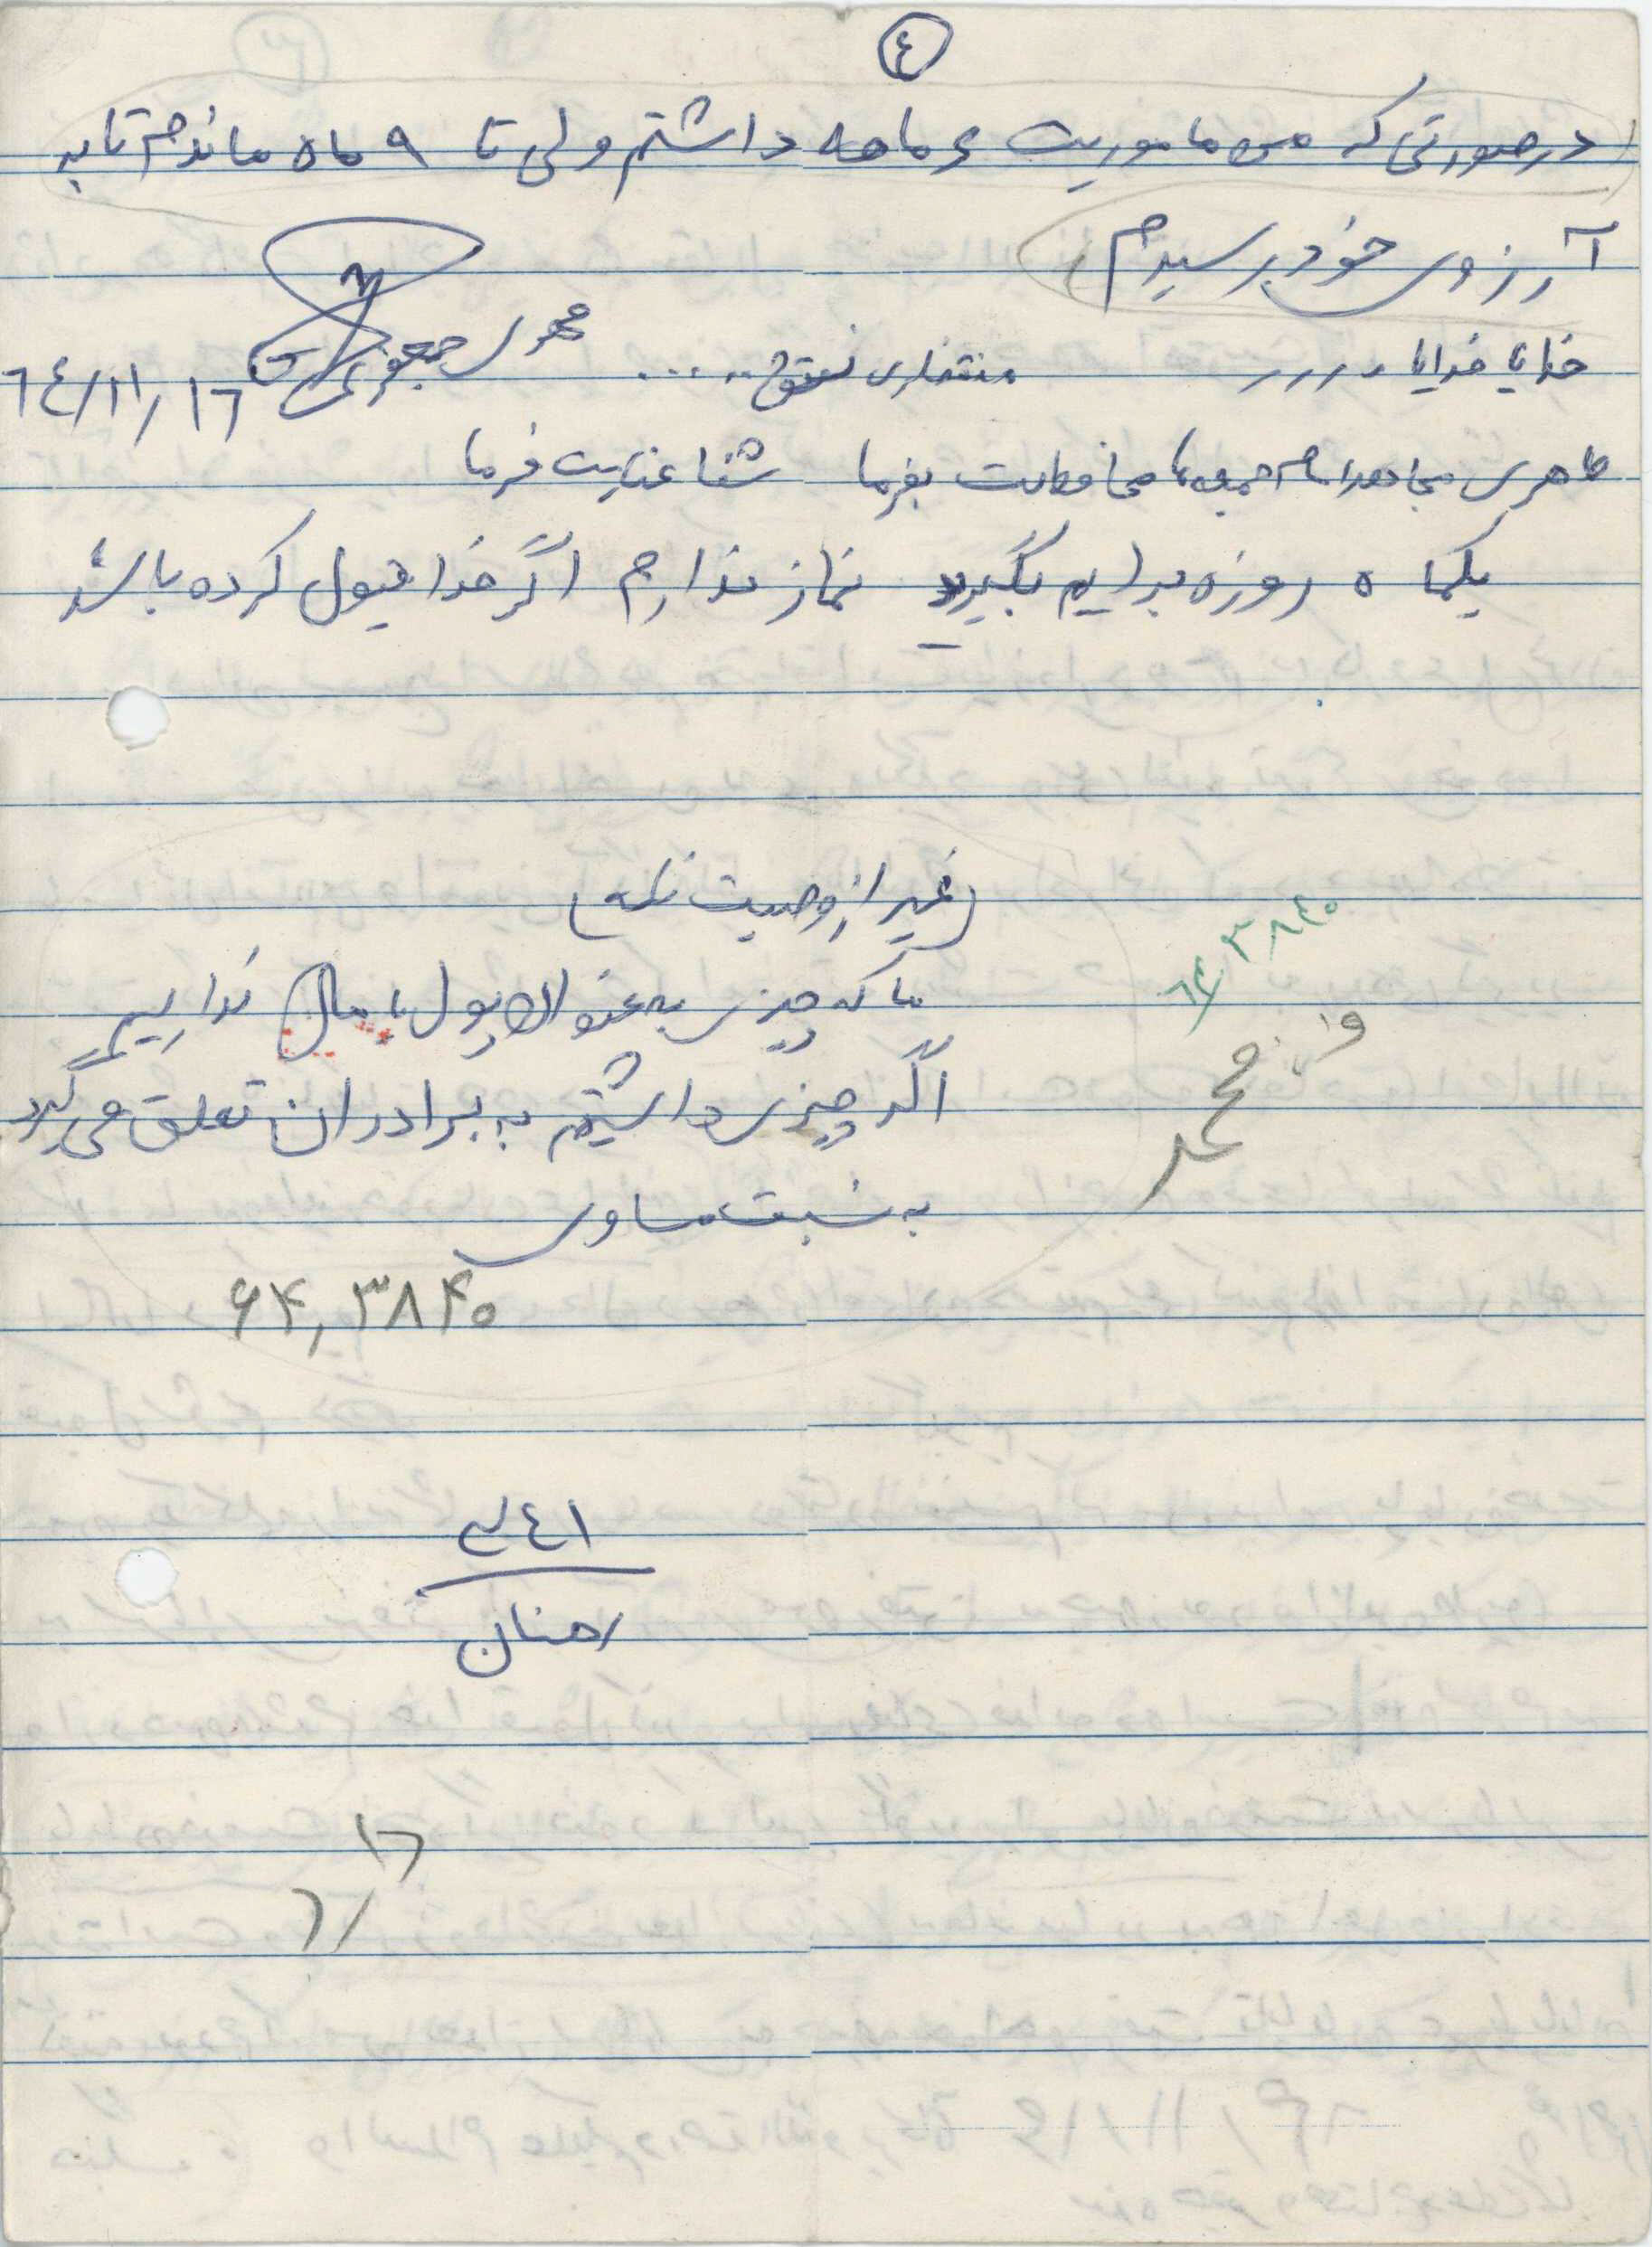 ٤
(درصورتی که من ماموریت ۶ ماهه داشتم ولی تا ۹ ماه ماندم تا به
آرزوی خود برسیدم)
خدایا خدایا .... منتظری ..... جعفری ٦٤/١١/١٦
محافظت بفرما شفا عنایت فرما
یکماه روزه برایم بگیرید نماز ندارم اگر خدا قبول کرده باشد
(غیر از وصیت نامه)
ما که چیزی به عنوان پول یا مال نداریم
اگر چیزی داشتیم به برادران تعلق می گیرد
به نسبت مساوی
۶۴٫۳۸۴۰
٦٤٫٣٨٤٠
محمد
٤١
رهنان
١٦